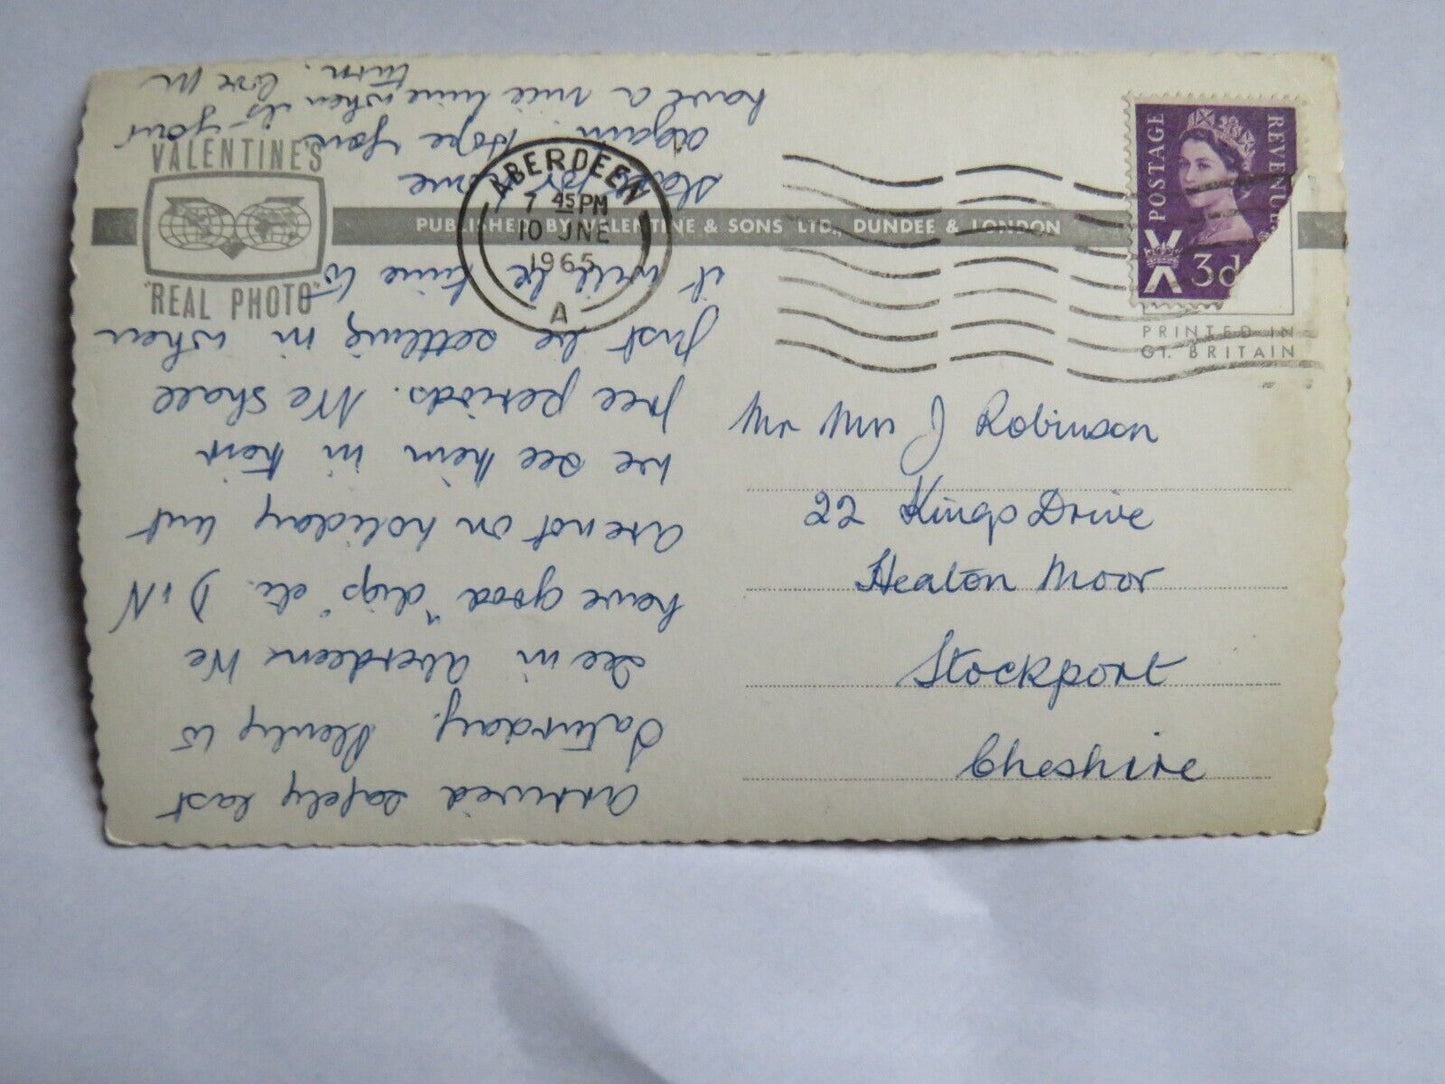 VALENTINE'S
"REAL PHOTO"
PUBLISHED BY VALENTINE & SONS LTD., DUNDEE & LONDON
ABERDEEN
7 45 PM
10 JNE
1965
A
POSTAGE
REVENUE
3d
PRINTED IN
GT. BRITAIN
Mr Mrs J Robinson
22 Kings Drive
Heaton Moor
Stockport
Cheshire
Arrived safely last
Saturday. Plenty to
see in Aberdeen. We
have good "digs" etc. D & N
are not on holiday but
we see them in their
free periods. We shall
just be settling in when
it will be time to
start for home
again. Hope you
have a nice time when its your
turn. love M